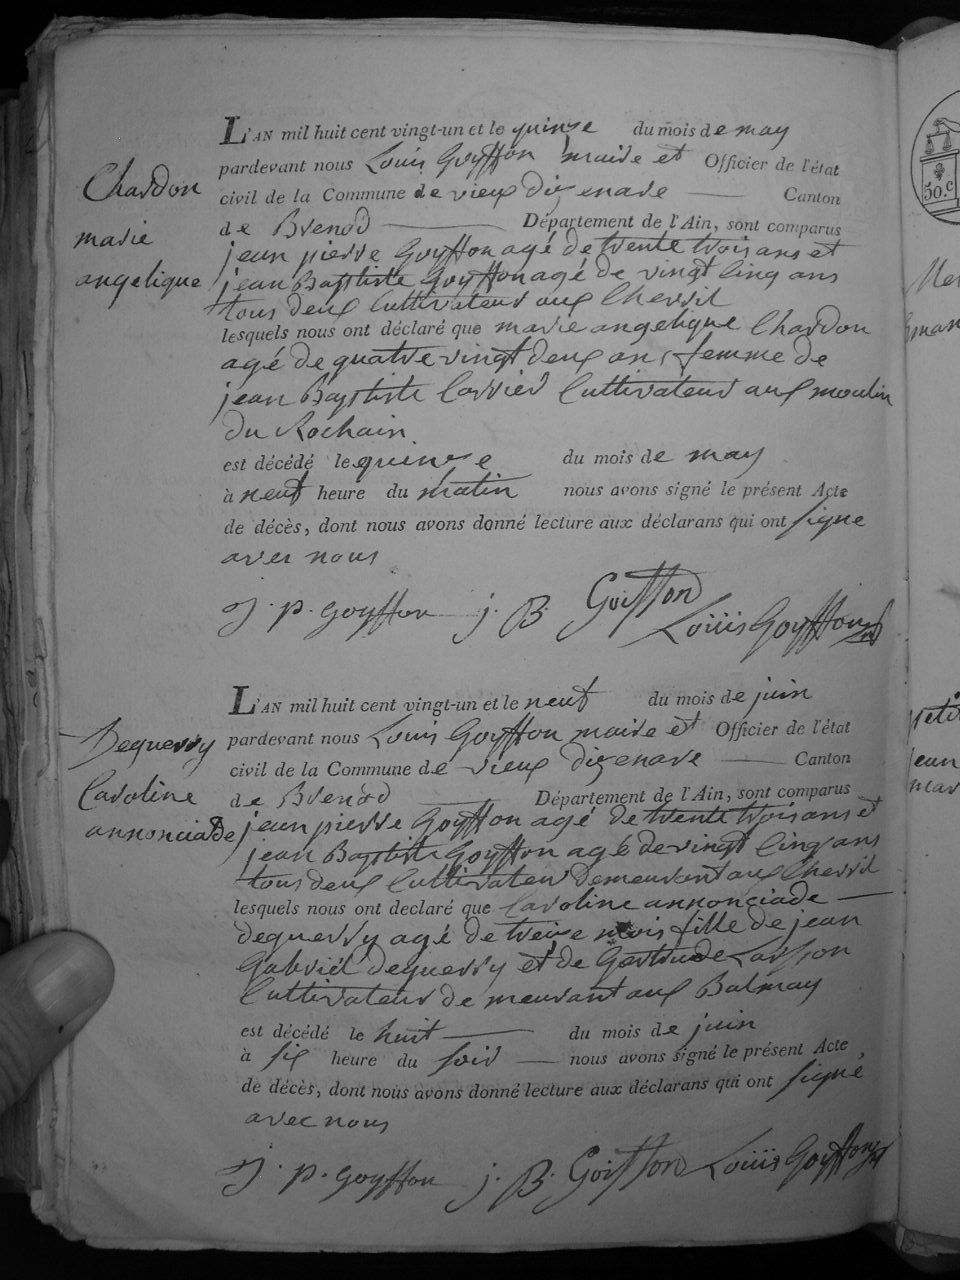 L'AN mil huit cent vingt-un et le quinze du mois de may
pardevant nous Louis Goyffon maire et Officier de l'état
civil de la Commune de vieux dizenave Canton
de Brenod Département de l'Ain, sont comparus
jean pierre Goyffon agé de trente trois ans et
jean Baptiste Goyffon agé de vingt cinq ans
tous deux cultivateur aux Chevril
lesquels nous ont déclaré que marie angelique Chardon
agé de quatre vingt deux ans femme de
jean Baptiste Carrier Cultivateur aux moulin
du Rochain
est décédé le quinze du mois de may
à neuf heure du matin nous avons signé le présent Acte
de décès, dont nous avons donné lecture aux déclarans qui ont signe
avec nous
j. p. goyffon j. B. Goiffon
Louis Goyffon
Chardon
marie
angelique
L'AN mil huit cent vingt-un et le neuf du mois de juin
pardevant nous Louis Goyffon maire et Officier de l'état
civil de la Commune de vieux dizenave Canton
de Brenod Département de l'Ain, sont comparus
jean pierre Goyffon agé de trente trois ans et
jean Baptiste Goyffon agé de vingt cinq ans
tous deux Cultivateur demeurant aux Chevril
lesquels nous ont declaré que Caroline annonciade
deguerry agé de treize mois fille de jean
Gabriél deguerry et de Gertrude
Cultivateur demeurant aux Balmay
est décédé le huit du mois de juin
à six heure du soir nous avons signé le présent Acte
de décès, dont nous avons donné lecture aux déclarans qui ont signé
avec nous
j. p. goyffon j. B. Goiffon Louis Goyffon
Deguerry
Caroline
annonciade
50.c